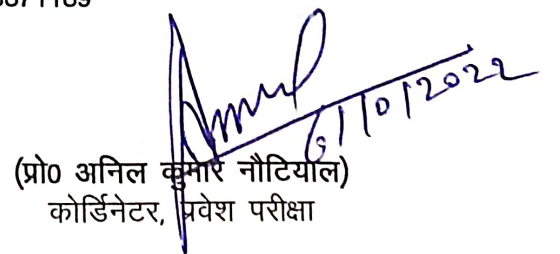 6/10/2022
(प्रो0 अनिल कुमार नौटियाल)
कोर्डिनेटर, प्रवेश परीक्षा